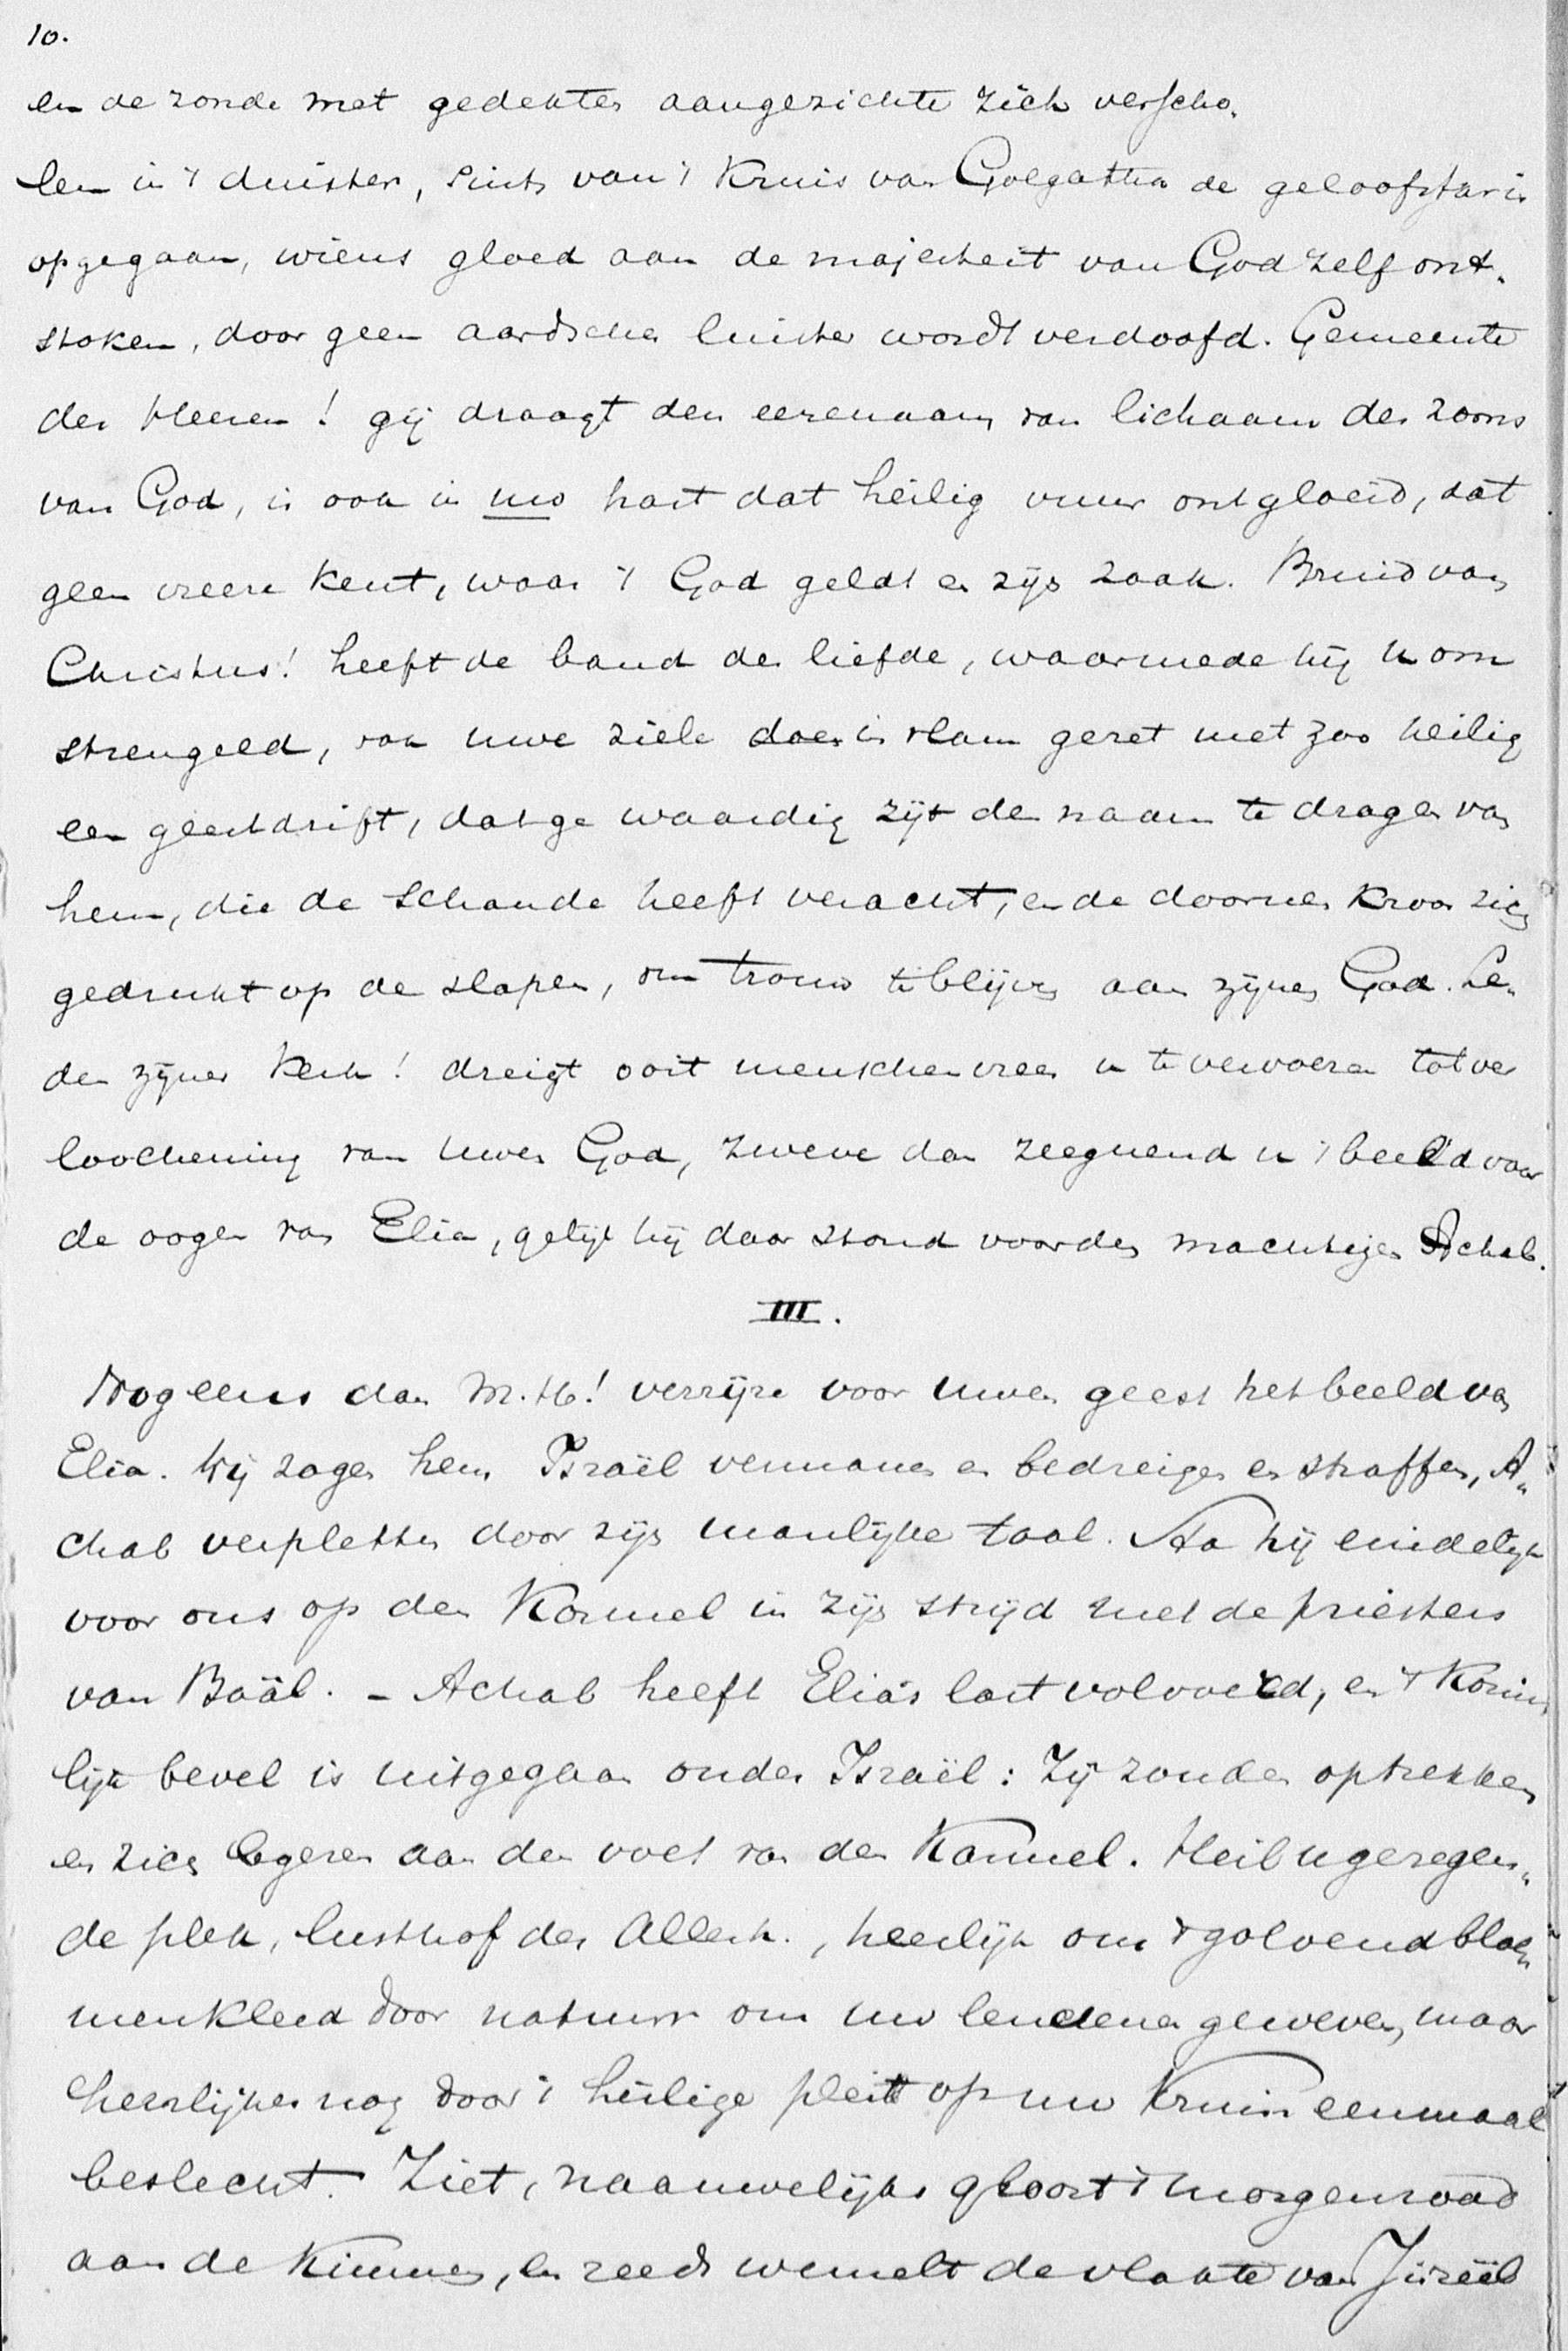 10.
en de zonde met gedekten aangezichte zich verscho„
len in 't duister, sints van 't Kruis van Golgatha de geloofsstar is
opgegaan, wiens gloed aan de majesteit van God zelf ont„
stoken, door geen aardschen luister wordt verdoofd. Gemeente
des Heeren! gij draagt den eerenaam van lichaam des zoons
van God, is ook in uw hart dat heilig vuur ontgloeid, dat
geen vreeze kent, waar 't God geldt en zijn zaak. Bruid van
Christus! heeft de band der liefde, waarmede hij u om
strengeld, ook uwe ziele doen in vlam gezet met zoo heilig
een geestdrift, dat ge waardig zijt den naam te dragen van
hem, die de schande heeft veracht, en de doornen kroon zich
gedrukt op de slapen, om trouw te blijven aan zijnen God. Le„
den zijner Kerk! dreigt ooit menschenvrees u te vervoeren tot ver
loochening van uwen God, zweve dan zeegnend u 't beeld voor
de oogen van Elia, gelijk hij daar stond voor den machtigen Achab.
III.
Nog eens dan M. H.! verrijze voor uwen geest het beeld van
Elia. Wij zagen hem Israël vermanen en bedreigen en straffen, A„
chab verpletten door zijn manlijke taal. Sta hij eindelijk
voor ons op den Karmel in zijn strijd met de priesters
van Baäl. – Achab heeft Elia's last volvoerd, en 't Konink
lijk bevel is uitgegaan onder Israël: Zij zouden optrekken
en zich legeren aan den voet van den Karmel. Heil u gezegen„
de plek, lusthof des Allerh., heerlijk om 't golvend bloe„
menkleed door natuur om uw lendenen geweven, maar
heerlijker nog door 't heilige pleit op uw Kruin eenmaal
beslecht. Ziet, naauwelijks gloort 't morgenrood
aan de Kimmen, en reeds wemelt de vlakte van Jizreël